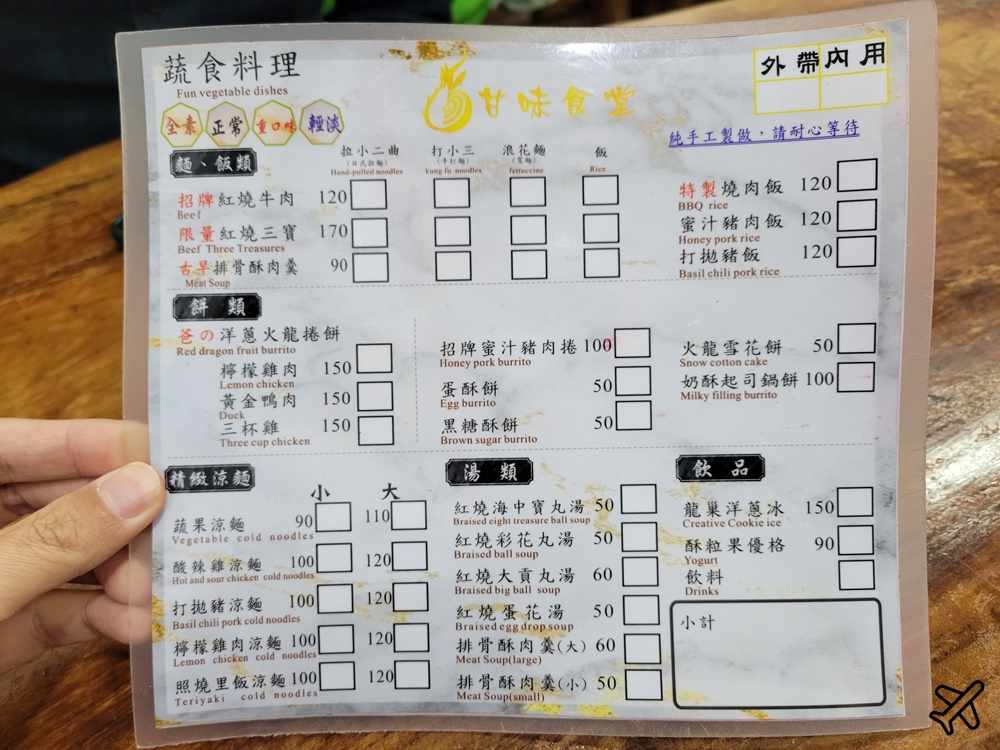 蔬食料理
Fun vegetable dishes
全素 正常 重口味 輕淡
甘味食堂
外帶 內用
純手工製做，請耐心等待
麵、飯類
拉小二曲 打小三 浪花麵 飯
(日式拉麵) (手打麵) (寬麵)
Hand-pulled noodles kung fu noodles fettuccine Rice
招牌紅燒牛肉 120
Beef
限量紅燒三寶 170
Beef Three Treasures
古早排骨酥肉羹 90
Meat Soup
特製燒肉飯 120
BBQ rice
蜜汁豬肉飯 120
Honey pork rice
打拋豬飯 120
Basil chili pork rice
餅類
爸の洋蔥火龍捲餅
Red dragon fruit burrito
檸檬雞肉 150
Lemon chicken
黃金鴨肉 150
Duck
三杯雞 150
Three cup chicken
招牌蜜汁豬肉捲 100
Honey pork burrito
蛋酥餅 50
Egg burrito
黑糖酥餅 50
Brown sugar burrito
火龍雪花餅 50
Snow cotton cake
奶酥起司鍋餅 100
Milky filling burrito
精緻涼麵
小 大
蔬果涼麵 90 110
Vegetable cold noodles
酸辣雞涼麵 100 120
Hot and sour chicken cold noodles
打拋豬涼麵 100 120
Basil chili pork cold noodles
檸檬雞肉涼麵 100 120
Lemon chicken cold noodles
照燒里飯涼麵 100 120
Teriyaki cold noodles
湯類
紅燒海中寶丸湯 50
Braised eight treasure ball soup
紅燒彩花丸湯 50
Braised ball soup
紅燒大貢丸湯 60
Braised big ball soup
紅燒蛋花湯 50
Braised egg drop soup
排骨酥肉羹(大) 60
Meat Soup(large)
排骨酥肉羹(小) 50
Meat Soup(small)
飲品
龍巢洋蔥冰 150
Creative Cookie ice
酥粒果優格 90
Yogurt
飲料
Drinks
小計